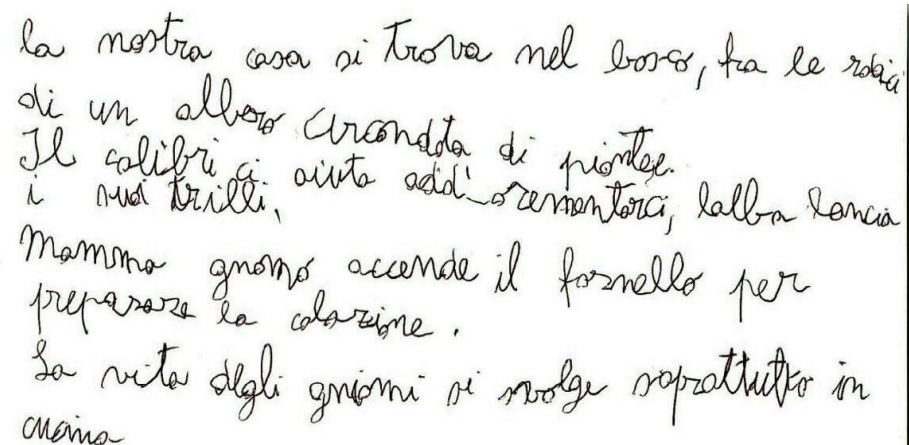 la nostra casa si trova nel bosco, fra le radici
di un albero circondata di piante.
Il colibrì ci aiuta add' ormentarci, lalba lancia
i suoi trilli,
Mamma gnomo accende il fornello per
preparare la colazione.
La vita degli gniomi si svolge soprattutto in
cucina